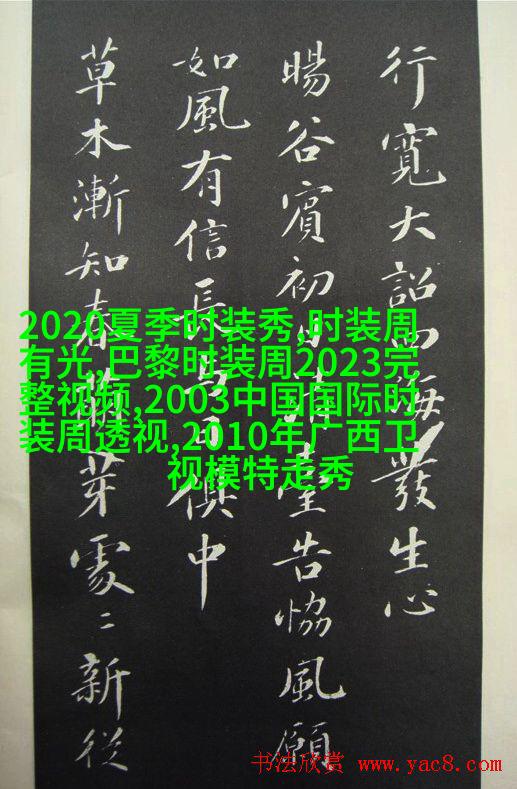 行寬大詔四海發生心
暘谷賓初日清臺告協風願
如風有信長與日俱中
草木漸知春萌芽處〻新從
2020夏季时装秀,时装周
有光,巴黎时装周2023完
整视频,2003中国国际时
装周透视,2010年广西卫
视模特走秀
书法欣赏 www.yac8.com